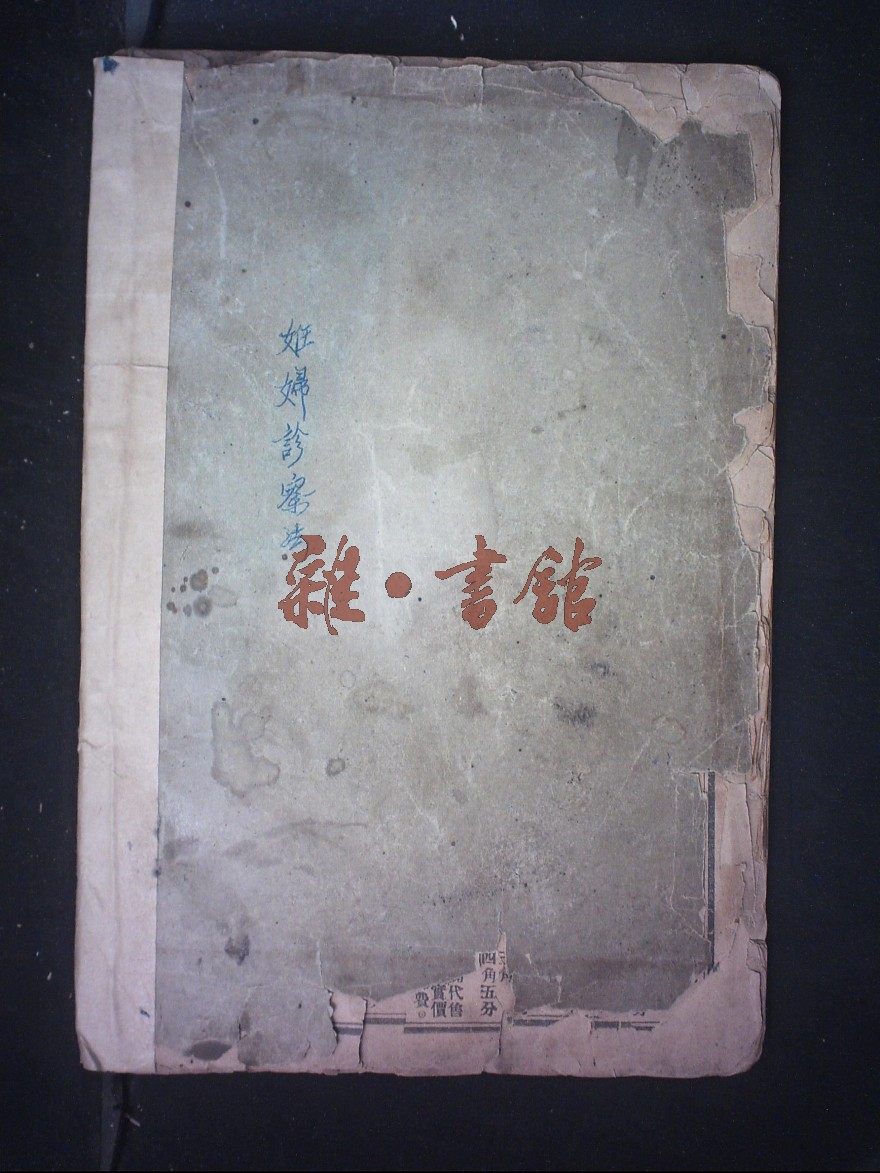 姙婦診察法
雜·書館
四角五分
代售
實價
費